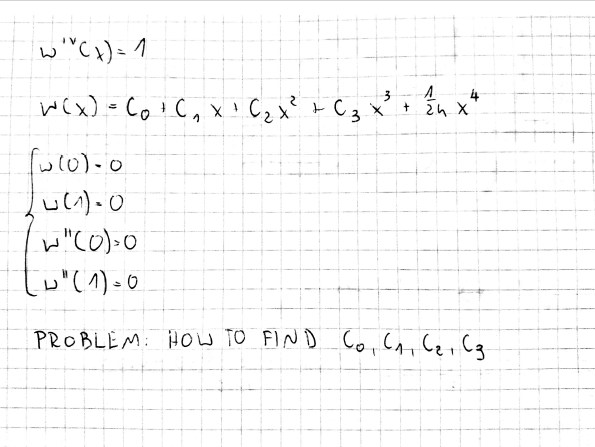 w'ᵛ(x) = 1
w(x) = C₀ + C₁ x + C₂ x² + C₃ x³ + 1/24 x⁴
w(0) = 0
w(1) = 0
w"(0) = 0
w"(1) = 0
PROBLEM: HOW TO FIND C₀, C₁, C₂, C₃